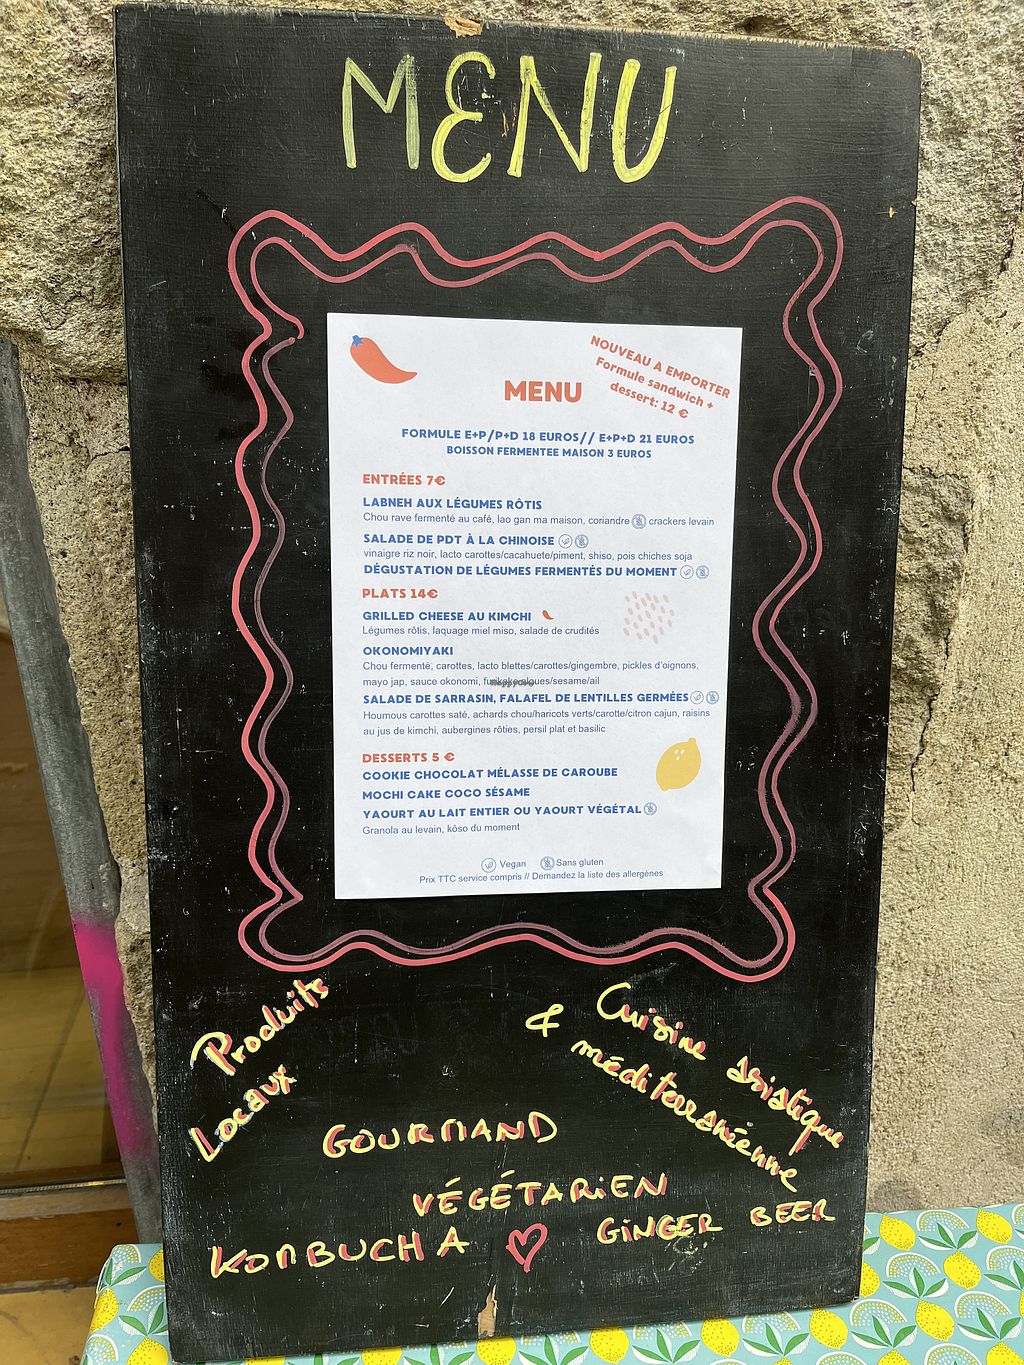 MENU
NOUVEAU A EMPORTER
Formule sandwich +
dessert: 12 €
MENU
FORMULE E+P/P+D 18 EUROS// E+P+D 21 EUROS
BOISSON FERMENTEE MAISON 3 EUROS
ENTRÉES 7€
LABNEH AUX LÉGUMES RÔTIS
Chou rave fermenté au café, lao gan ma maison, coriandre crackers levain
SALADE DE PDT À LA CHINOISE
vinaigre riz noir, lacto carottes/cacahuete/piment, shiso, pois chiches soja
DÉGUSTATION DE LÉGUMES FERMENTÉS DU MOMENT
PLATS 14€
GRILLED CHEESE AU KIMCHI
Légumes rôtis, laquage miel miso, salade de crudités
OKONOMIYAKI
Chou fermenté, carottes, lacto blettes/carottes/gingembre, pickles d'oignons,
mayo jap, sauce okonomi, furikake algues/sesame/ail
HappyCow
SALADE DE SARRASIN, FALAFEL DE LENTILLES GERMÉES
Houmous carottes saté, achards chou/haricots verts/carotte/citron cajun, raisins
au jus de kimchi, aubergines rôties, persil plat et basilic
DESSERTS 5 €
COOKIE CHOCOLAT MÉLASSE DE CAROUBE
MOCHI CAKE COCO SÉSAME
YAOURT AU LAIT ENTIER OU YAOURT VÉGÉTAL
Granola au levain, kôso du moment
Vegan Sans gluten
Prix TTC service compris // Demandez la liste des allergènes
Produits
Locaux
Cuisine asiatique
& méditerranéenne
GOURMAND
VÉGÉTARIEN
KOMBUCHA GINGER BEER